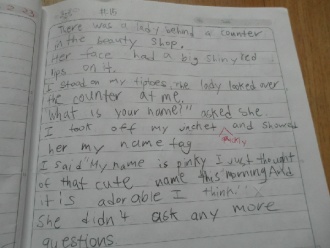 There was a lady behind a counter
in the beauty shop.
Her face had a big shiny red
lips on it.
I stood on my tiptoes. The lady looked over
the counter at me.
"What is your name?" asked she
I took off my and showed
her my name tag
I said "My name is pinky I just thought
of that cute name this morning. And
it is adorable I think."
She didn't ask any more
questions